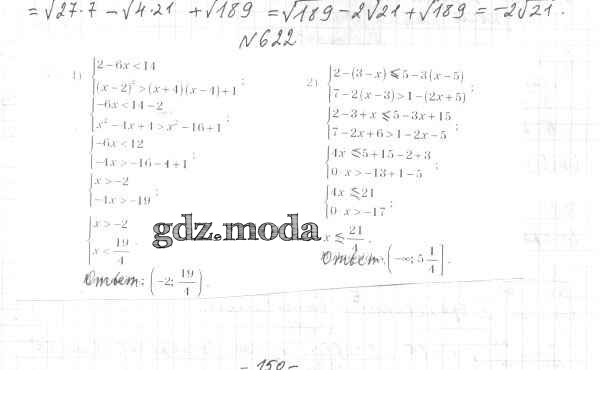 = √27·7 − √4·21 + √189 = √189 − 2√21 + √189 = −2√21.
№622
1) { 2−6x<14
(x−2)²>(x+4)(x−4)+1 ;
{ −6x<14−2
x²−4x+4>x²−16+1 ;
{ −6x<12
−4x>−16−4+1 ;
{ x>−2
−4x>−19 ;
{ x>−2
x< 19/4 .
Ответ: (−2; 19/4).
2) { 2−(3−x)≤5−3(x−5)
7−2(x−3)>1−(2x+5) ;
{ 2−3+x≤5−3x+15
7−2x+6>1−2x−5 ;
{ 4x≤5+15−2+3
0·x>−13+1−5 ;
{ 4x≤21
0·x>−17 ;
x≤ 21/4 .
Ответ: (−∞; 5 1/4].
gdz.moda
- 150 -